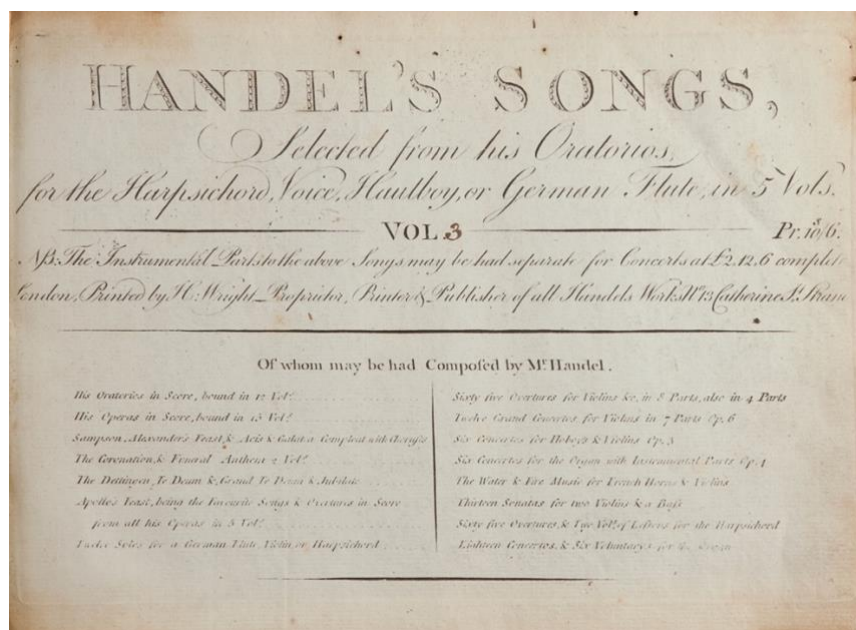 HANDEL'S SONGS,
Selected from his Oratorios,
for the Harpsichord, Voice, Hautboy, or German Flute, in 5 Vols.
VOL 3
Pr. 10/6.
NB. The Instrumental Parts to the above Songs may be had separate for Concerts at £2.12.6 complet
London, Printed by H. Wright Proprietor, Printer & Publisher of all Handels Works No. 13 Catherine St. Stran
Of whom may be had Composed by Mr. Handel.
His Oratorios in Score, bound in 12 Vols.
His Operas in Score, bound in 13 Vols.
Sampson, Alexander's Feast, & Acis & Galatea Compleat with Chorusses
The Coronation, & Funeral Anthem 2 Vols.
The Dettingen, Te Deum &, Grand Te Deum & Jubilate
Apollo's Feast, being the Favourite Songs & Overtures in Score
from all his Operas in 5 Vols.
Twelve Solos for a German Flute, Violin or Harpsichord
Sixty five Overtures for Violins &c, in 8 Parts, also in 4 Parts
Twelve Grand Concertos for Violins in 7 Parts Op. 6
Six Concertos for Hoboys & Violins Op. 3
Six Concertos for the Organ with Instrumental Parts Op. 4
The Water & Fire Music for French Horns & Violins
Thirteen Sonatas for two Violins & a Bass
Sixty five Overtures, & Two Vols. of Lessons for the Harpsichord
Eighteen Concertos, & Six Voluntarys for the Organ